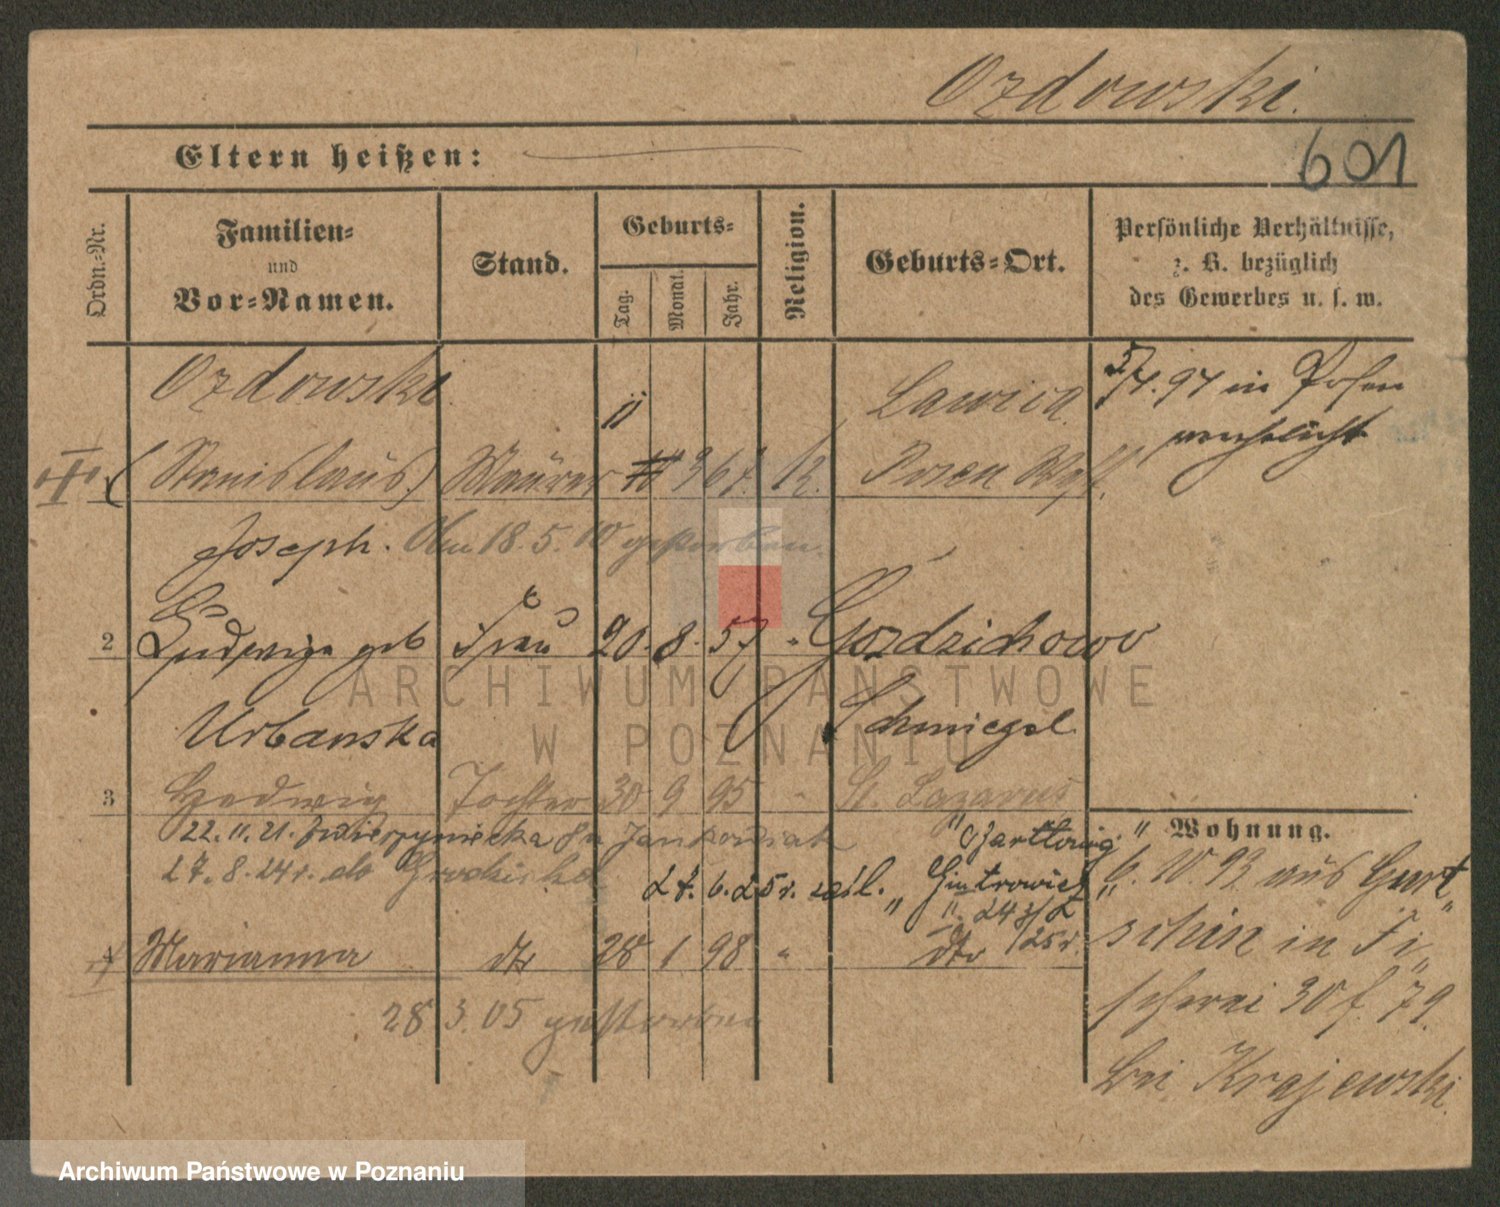 Ozdowski.
601
Eltern heißen:
Ordn.-Nr.
Familien-
und
Vor-Namen.
Stand.
Geburts-
Tag.
Monat.
Jahr.
Religion.
Geburts-Ort.
Persönliche Verhältnisse,
z. B. bezüglich
des Gewerbes u. s. w.
Ozdowski Lawica 5/7. 97 in Posen
11 verehelicht
1 (Stanislaus) Maurer 3 67. K. Posen
Joseph. Am 18. 5. 10 gestorben.
2 Ludwiga geb Frau 20. 8. 57 " Gozdzichowo
Urbanska Schmiegel
3 Hedwig Tochter 30 9 95 " St. Lazarus
22. 11. 21. Zwierzyniecka 8
27. 8. 24 r. do Grodziska
27. 6. 25 r.
" 24
25 r.
4 Marianna dto 28 1 98 " dto
28 3. 05 gestorben
Wohnung.
6. 10 93 aus Gurt
schin in Fi
scherei 30 f. 79.
bei Krajewski.
ARCHIWUM PAŃSTWOWE
W POZNANIU
Archiwum Państwowe w Poznaniu